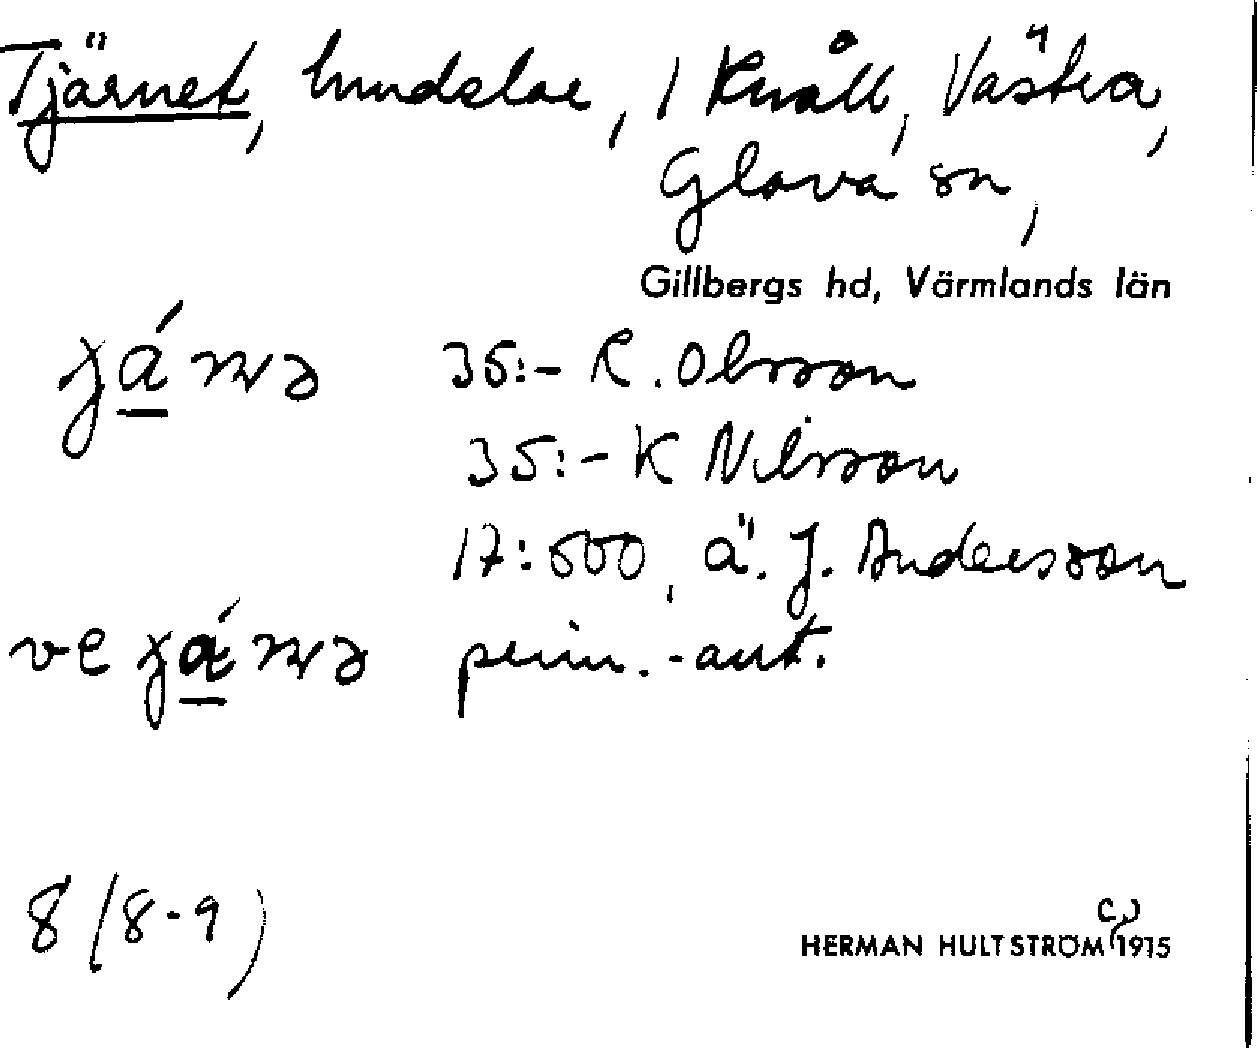 Tjärnet, hmdelar, / Knåll, Västra,
Glava sn,
Gillbergs hd, Värmlands län
35:- R. Olsson
35:- K Nilsson
17:500, ä. J. Andersson
ve prim.-aut.
8 (8-9)
c.
HERMAN HULTSTRÖM 1915